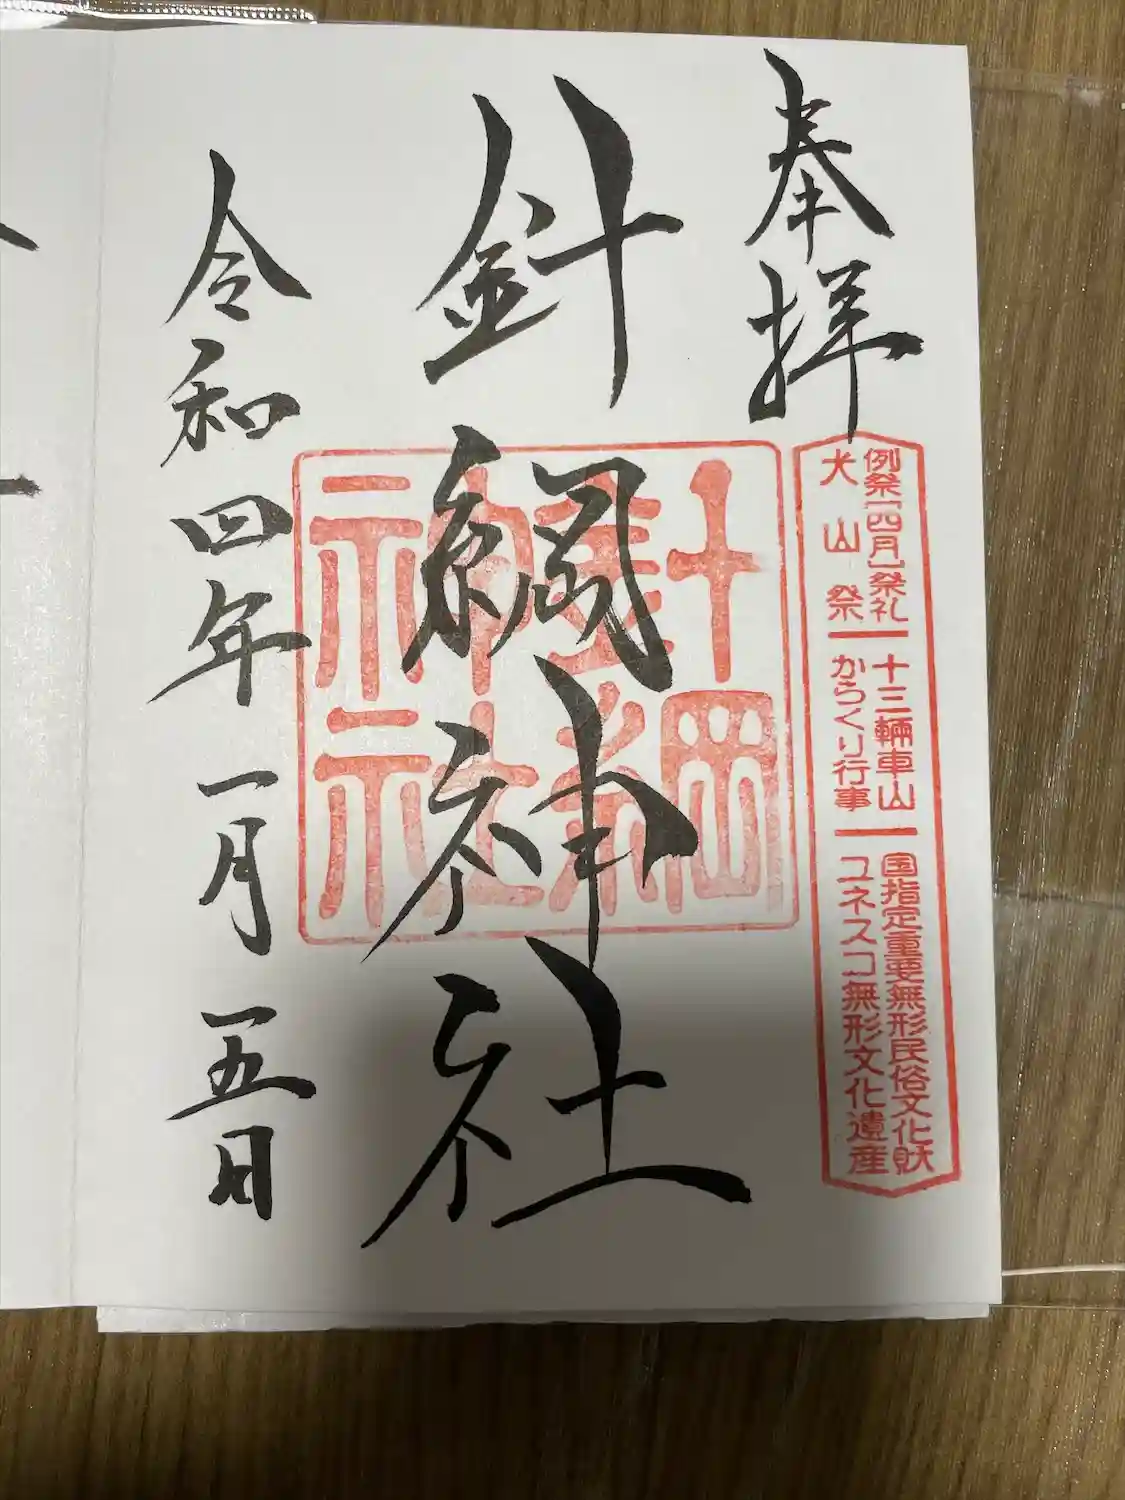 奉拝
例祭「四月」祭礼
犬山祭
十三輛車山
からくり行事
国指定重要無形民俗文化財
ユネスコ無形文化遺産
針綱神社
針綱神社
令和四年一月五日